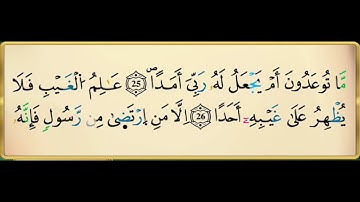 مَّا تُوعَدُونَ أَمْ يَجْعَلُ لَهُۥ رَبِّىَ أَمَدًاۖ 25 عَٰلِمُ اُ۬لْغَيْبِ فَلَا
يُظْهِرُ عَلَىٰ غَيْبِهِۦٓ أَحَدًا 26 اِلَّا مَنِ اِ۪رْتَضىٰ مِن رَّسُولٖ فَإِنَّهُۥ